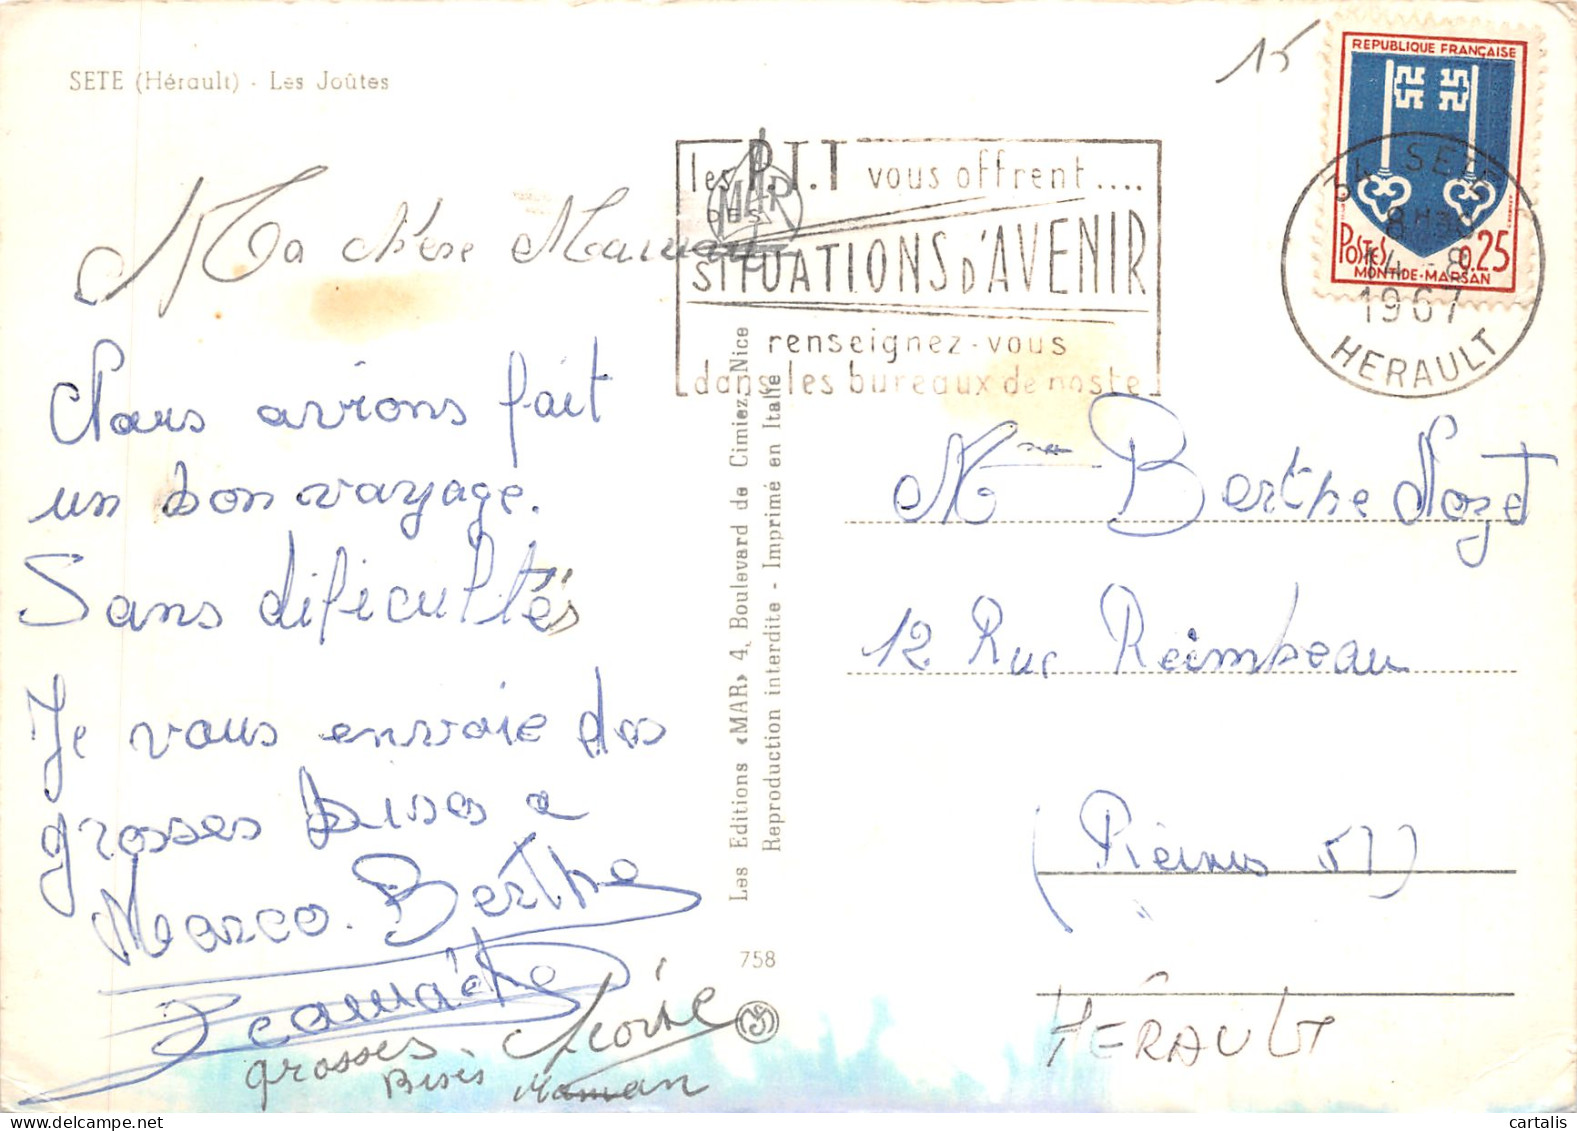 SETE (Hérault) - Les Joûtes
15
REPUBLIQUE FRANÇAISE
POSTES 0.25
MONT-DE-MARSAN
34 SETE
8H30
14-8
1967
HERAULT
les P.T.T vous offrent....
DES
SITUATIONS D'AVENIR
renseignez-vous
dans les bureaux de poste
MAR
Ma chère Maman
Nous avions fait
un bon voyage.
Sans dificultés
Je vous envoie des
grosses bises a
Marco. Berthe
grosses
Bises Maman
Les Editions «MAR» 4, Boulevard de Cimiez, Nice
Reproduction interdite - Imprimé en Italie
758
Mme Berthe Nozet
12 Rue Raimbeau
(Reims 51)
HÉRAULT
cartalis